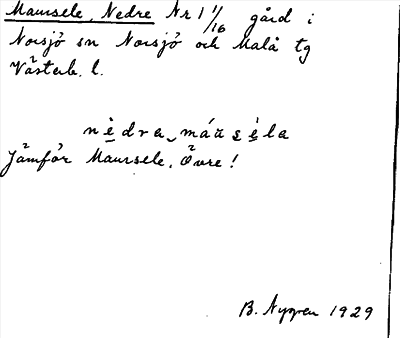 Maursele, Nedre Nr 1 1/16 gård i
Norsjö sn Norsjö och Malå tg
Västerb. l.
Jämför Maursele, Övre!
B. Nygren 1929